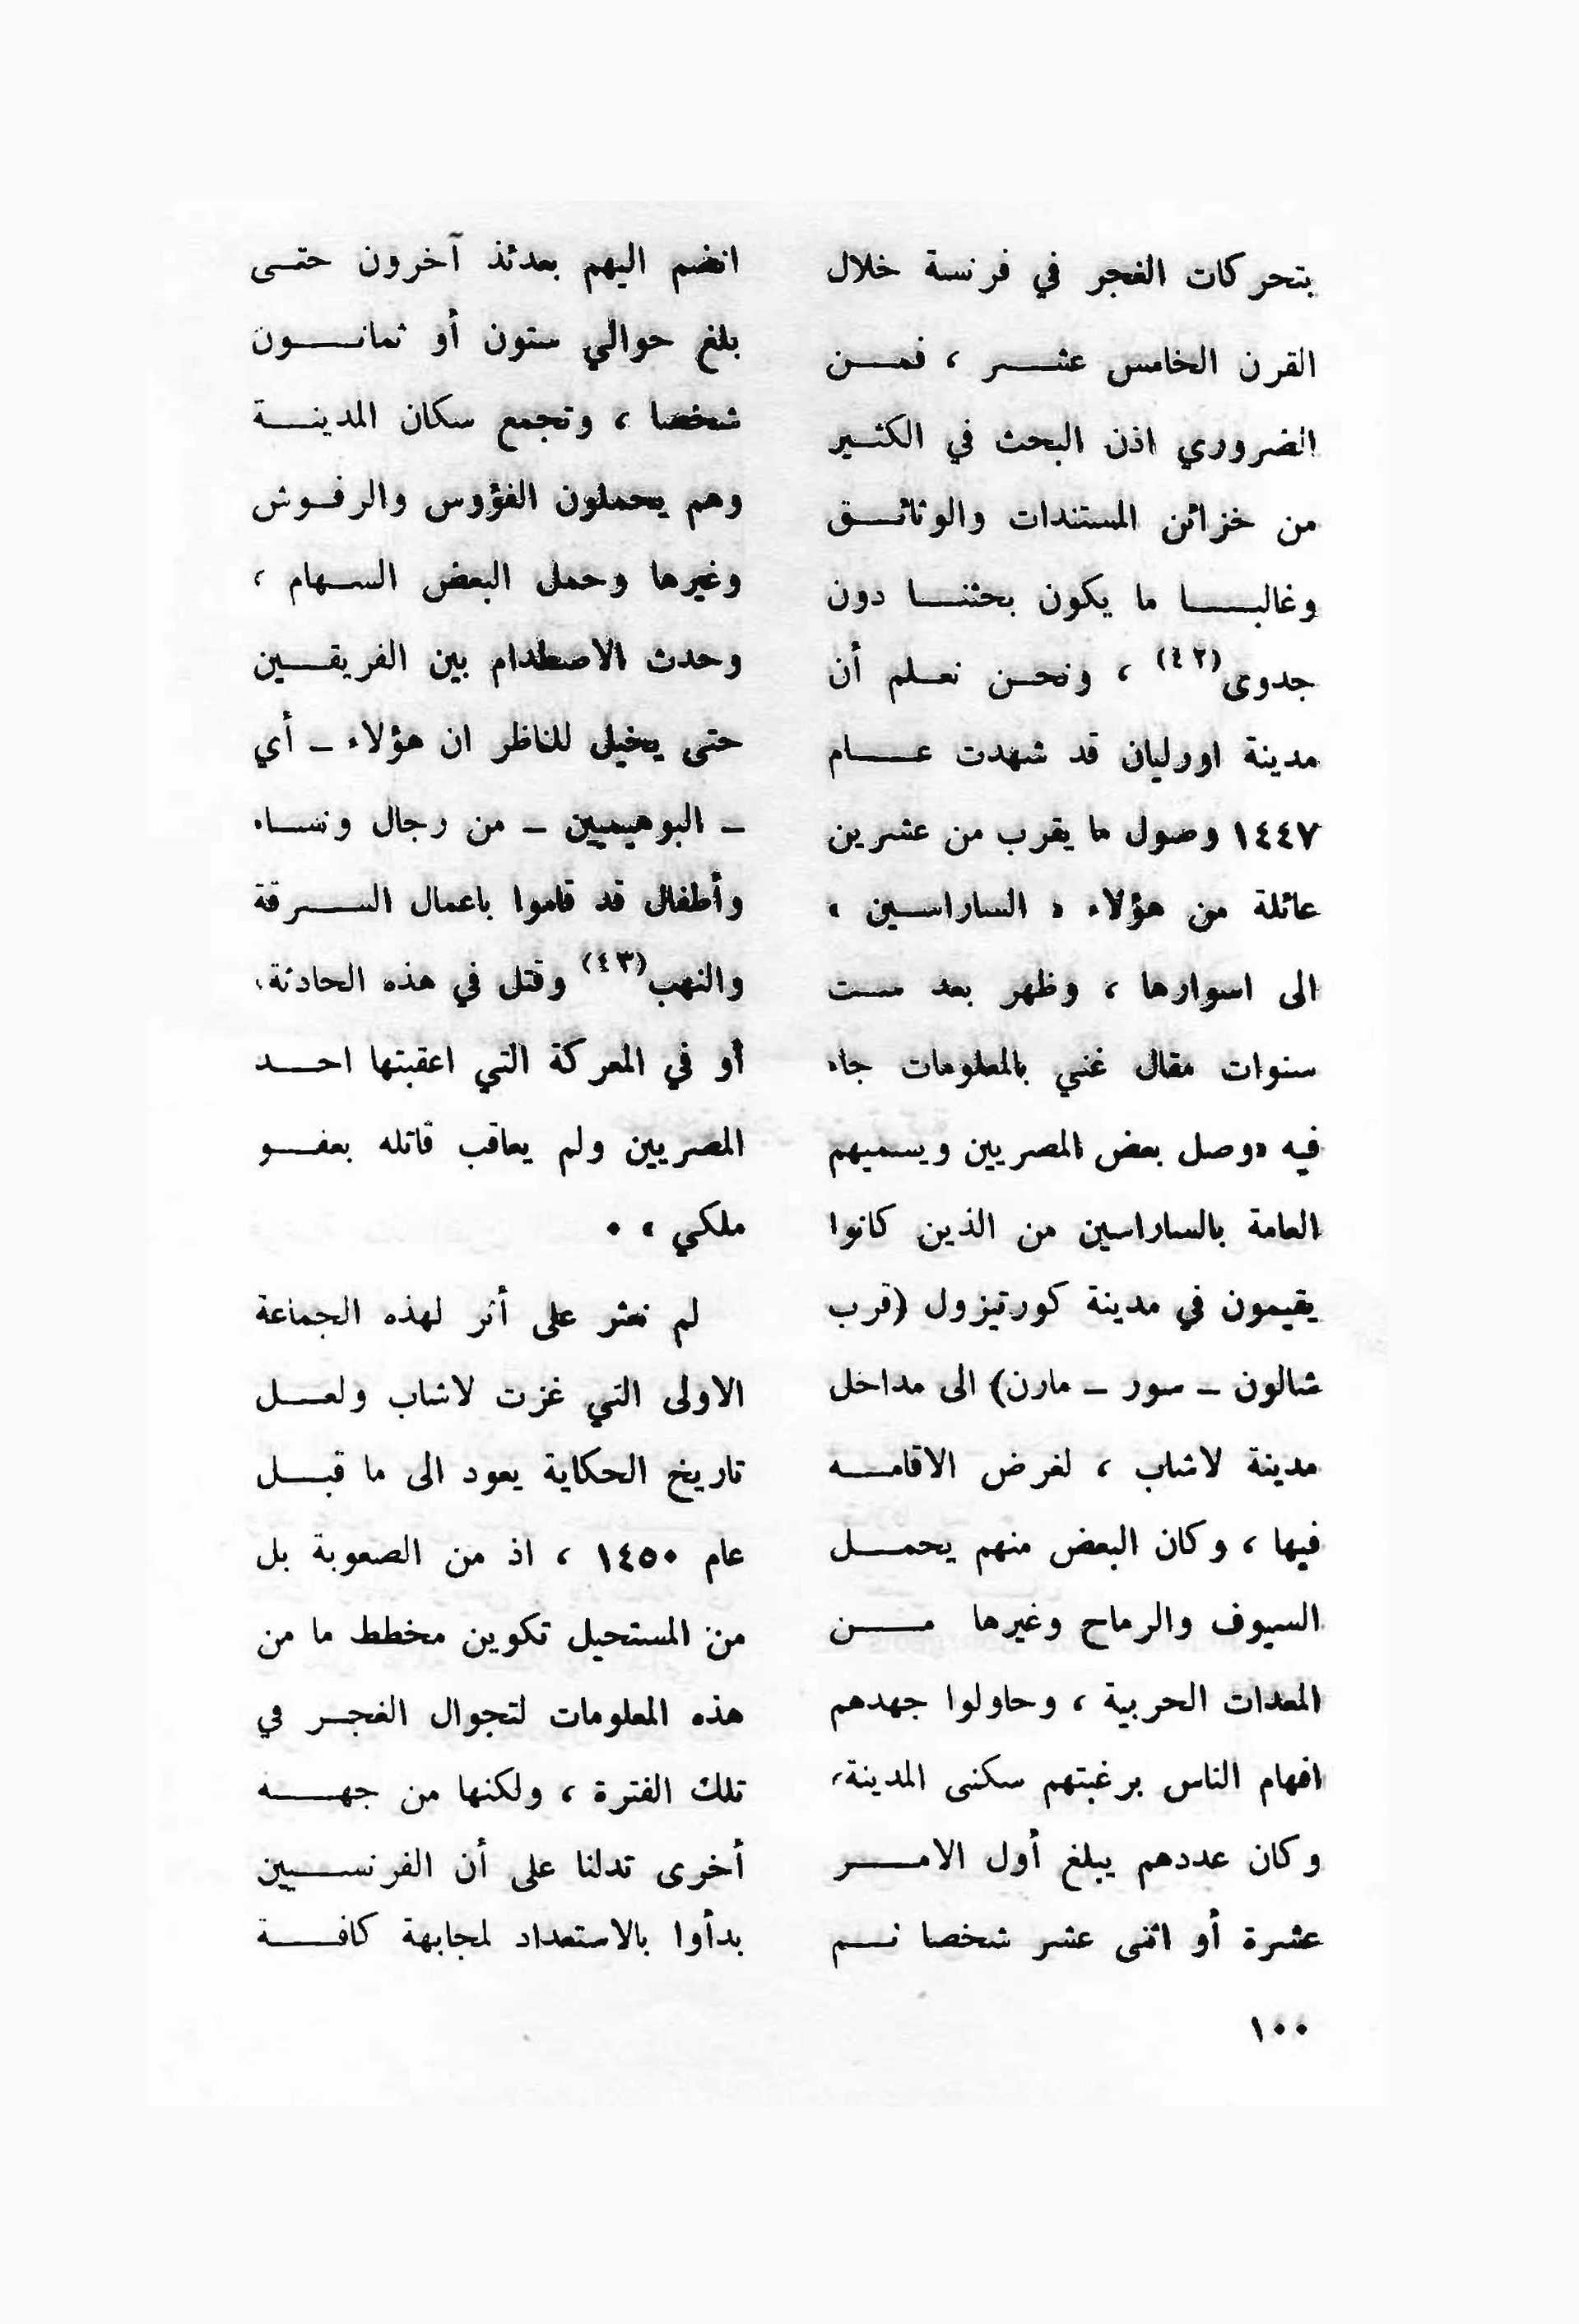 بتحركات الغجر في فرنسة خلال
القرن الخامس عشر ، فمن
الضروري اذن البحث في الكثير
من خزائن المستندات والوثائق
وغالبا ما يكون بحثنا دون
جدوى(٤٢) ، ونحن نعلم أن
مدينة اورليان قد شهدت عام
١٤٤٧ وصول ما يقرب من عشرين
عائلة من هؤلاء « الساراسين »
الى اسوارها ، وظهر بعد ست
سنوات مقال غني بالمعلومات جاء
فيه «وصل بعض المصريين ويسميهم
العامة بالساراسين من الذين كانوا
يقيمون في مدينة كورتيزول (قرب
شالون – سور – مارن) الى مداخل
مدينة لاشاب ، لغرض الاقامه
فيها ، وكان البعض منهم يحمل
السيوف والرماح وغيرها من
المعدات الحربية ، وحاولوا جهدهم
افهام الناس برغبتهم سكنى المدينة،
وكان عددهم يبلغ أول الامر
عشرة أو اثنى عشر شخصا ثم
انضم اليهم بعدئذ آخرون حتى
بلغ حوالي ستون أو ثمانون
شخصا ، وتجمع سكان المدينة
وهم يحملون الفؤوس والرفوش
وغيرها وحمل البعض السهام ،
وحدث الاصطدام بين الفريقين
حتى يخيل للناظر ان هؤلاء – أي
– البوهيميين – من رجال ونساء
وأطفال قد قاموا باعمال السرقة
والنهب(٤٣) وقتل في هذه الحادثة،
أو في المعركة التي اعقبتها احد
المصريين ولم يعاقب قاتله بعفو
ملكي » .
لم نعثر على أثر لهذه الجماعة
الاولى التي غزت لاشاب ولعل
تاريخ الحكاية يعود الى ما قبل
عام ١٤٥٠ ، اذ من الصعوبة بل
من المستحيل تكوين مخطط ما من
هذه المعلومات لتجوال الغجر في
تلك الفترة ، ولكنها من جهه
أخرى تدلنا على أن الفرنسيين
بدأوا بالاستعداد لمجابهة كافة
١٠٠